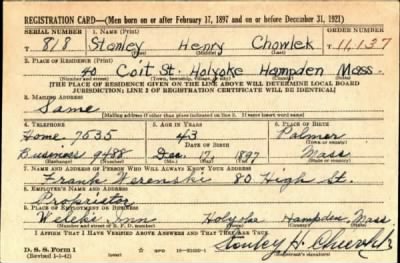 REGISTRATION CARD—(Men born on or after February 17, 1897 and on or before December 31, 1921)
SERIAL NUMBER 1. NAME (Print) ORDER NUMBER
818 Stanley Henry Chowlek 11,137
(First) (Middle) (Last)
2. PLACE OF RESIDENCE (Print)
40 Coit St. Holyoke Hampden Mass.
(Number and street) (Town, township, village, or city) (County) (State)
[THE PLACE OF RESIDENCE GIVEN ON THE LINE ABOVE WILL DETERMINE LOCAL BOARD
JURISDICTION; LINE 2 OF REGISTRATION CERTIFICATE WILL BE IDENTICAL]
3. MAILING ADDRESS
Same
[Mailing address if other than place indicated on line 2. If same insert word same]
4. TELEPHONE 5. AGE IN YEARS 6. PLACE OF BIRTH
Home 7635 43 Palmer
DATE OF BIRTH (Town or county)
Business 9488 Dec. 17 1897 Mass
(Exchange) (Number) (Mo.) (Day) (Yr.) (State or country)
7. NAME AND ADDRESS OF PERSON WHO WILL ALWAYS KNOW YOUR ADDRESS
Frank Werenski 80 High St.
8. EMPLOYER'S NAME AND ADDRESS
Proprietor
9. PLACE OF EMPLOYMENT OR BUSINESS
Inn Holyoke Hampden, Mass
(Number and street or R. F. D. number) (Town) (County) (State)
I AFFIRM THAT I HAVE VERIFIED ABOVE ANSWERS AND THAT THEY ARE TRUE.
D. S. S. Form 1
(Revised 1-5-42) GPO Stanley H.
(Registrant's signature)